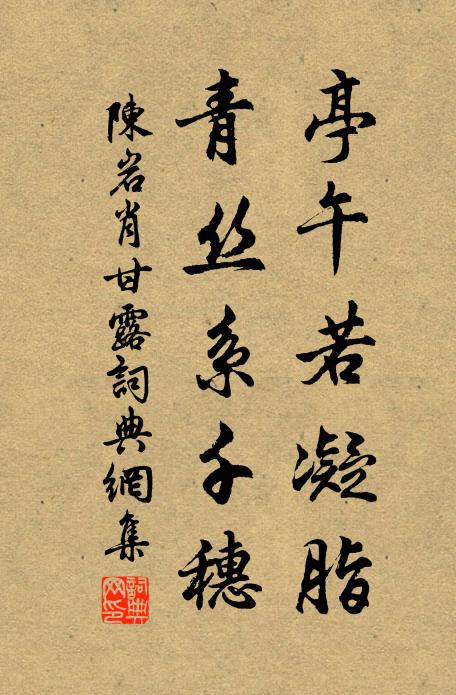 亭午若凝脂
青丝系千穗
陳岩肖甘露詞典網集
詞典網印